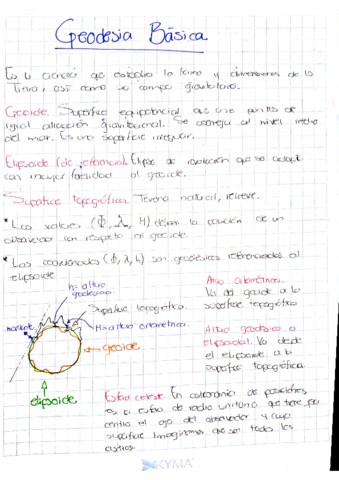 Geodesia Básica
Es la ciencia que estudia la forma y dimensiones de la
Tierra, así como su campo gravitatorio.
Geoide. Superficie equipotencial que une puntos de
igual atracción gravitacional. Se aconseja al nivel medio
del mar. Es una superficie irregular.
Elipsoide (de referencia). Elipse de revolución que se adapta
con mayor facilidad al geoide.
Superficie topográfica. Terreno natural, relieve.
* Los valores (Φ, λ, H) definen la posición de un
observador con respecto al geoide.
* Las coordenadas (Φ, λ, h) son geodésicas referenciadas al
elipsoide.
h = altura
geodésica
Superficie topográfica.
H = altura ortométrica.
geoide
elipsoide
Altura ortométrica.
Va del geoide a la
superficie topográfica
Altura geodésica o
elipsoidal. Va desde
el elipsoide a la
superficie topográfica.
Esfera celeste. En astronomía de posiciones
es la esfera de radio unitario que tiene por
centro el ojo del observador y cuya
superficie imaginamos que son todos los
astros.
KYMA